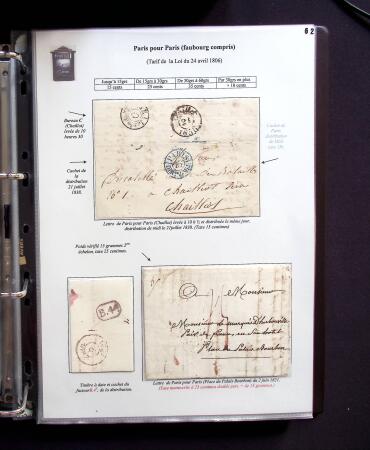 62
Paris pour Paris (faubourg compris)
(Tarif de la Loi du 24 avril 1806)
Jusqu'à 15grs De 15grs à 30grs De 30grs à 60grs Par 30grs en plus
15 cents 25 cents 35 cents + 10 cents
Bureau C
(Chaillot)
levée de 10
heures 30
Cachet de
Paris
distribution
de Midi
Cachet de la
distribution
21 juillet
1830.
N° 1. a Chaillot
Chaillot
Lettre de Paris pour Paris (Chaillot) levée à 10 h ½ et distribuée le même jour,
distribution de midi le 21 juillet 1830. (Taxe 15 centimes)
Poids vérifié 15 grammes 2ème
échelon, taxe 25 centimes.
B.4
A Monsieur
Monsieur
Place du Palais Bourbon
Timbre à date et cachet du
facteur B.4, de la distribution.
Lettre de Paris pour Paris (Place du Palais Bourbon) du 2 juin 1831.
(Taxe manuscrite à 25 centimes double port, + de 15 grammes.)